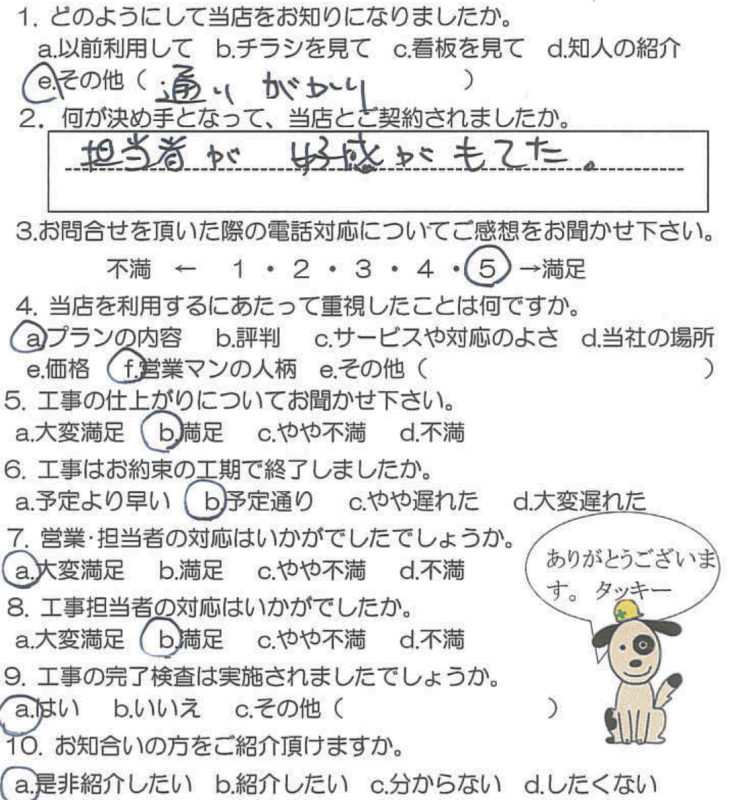 1. どのようにして当店をお知りになりましたか。
a.以前利用して b.チラシを見て c.看板を見て d.知人の紹介
e.その他（ 通りがかり ）
2. 何が決め手となって、当店とご契約されましたか。
担当者が 好感がもてた。
3.お問合せを頂いた際の電話対応についてご感想をお聞かせ下さい。
不満 ← 1 ・ 2 ・ 3 ・ 4 ・ 5 →満足
4. 当店を利用するにあたって重視したことは何ですか。
a.プランの内容 b.評判 c.サービスや対応のよさ d.当社の場所
e.価格 f.営業マンの人柄 e.その他（ ）
5. 工事の仕上がりについてお聞かせ下さい。
a.大変満足 b.満足 c.やや不満 d.不満
6. 工事はお約束の工期で終了しましたか。
a.予定より早い b.予定通り c.やや遅れた d.大変遅れた
7. 営業・担当者の対応はいかがでしたでしょうか。
a.大変満足 b.満足 c.やや不満 d.不満
ありがとうございま
す。 タッキー
8. 工事担当者の対応はいかがでしたか。
a.大変満足 b.満足 c.やや不満 d.不満
9. 工事の完了検査は実施されましたでしょうか。
a.はい b.いいえ c.その他（ ）
10. お知合いの方をご紹介頂けますか。
a.是非紹介したい b.紹介したい c.分からない d.したくない